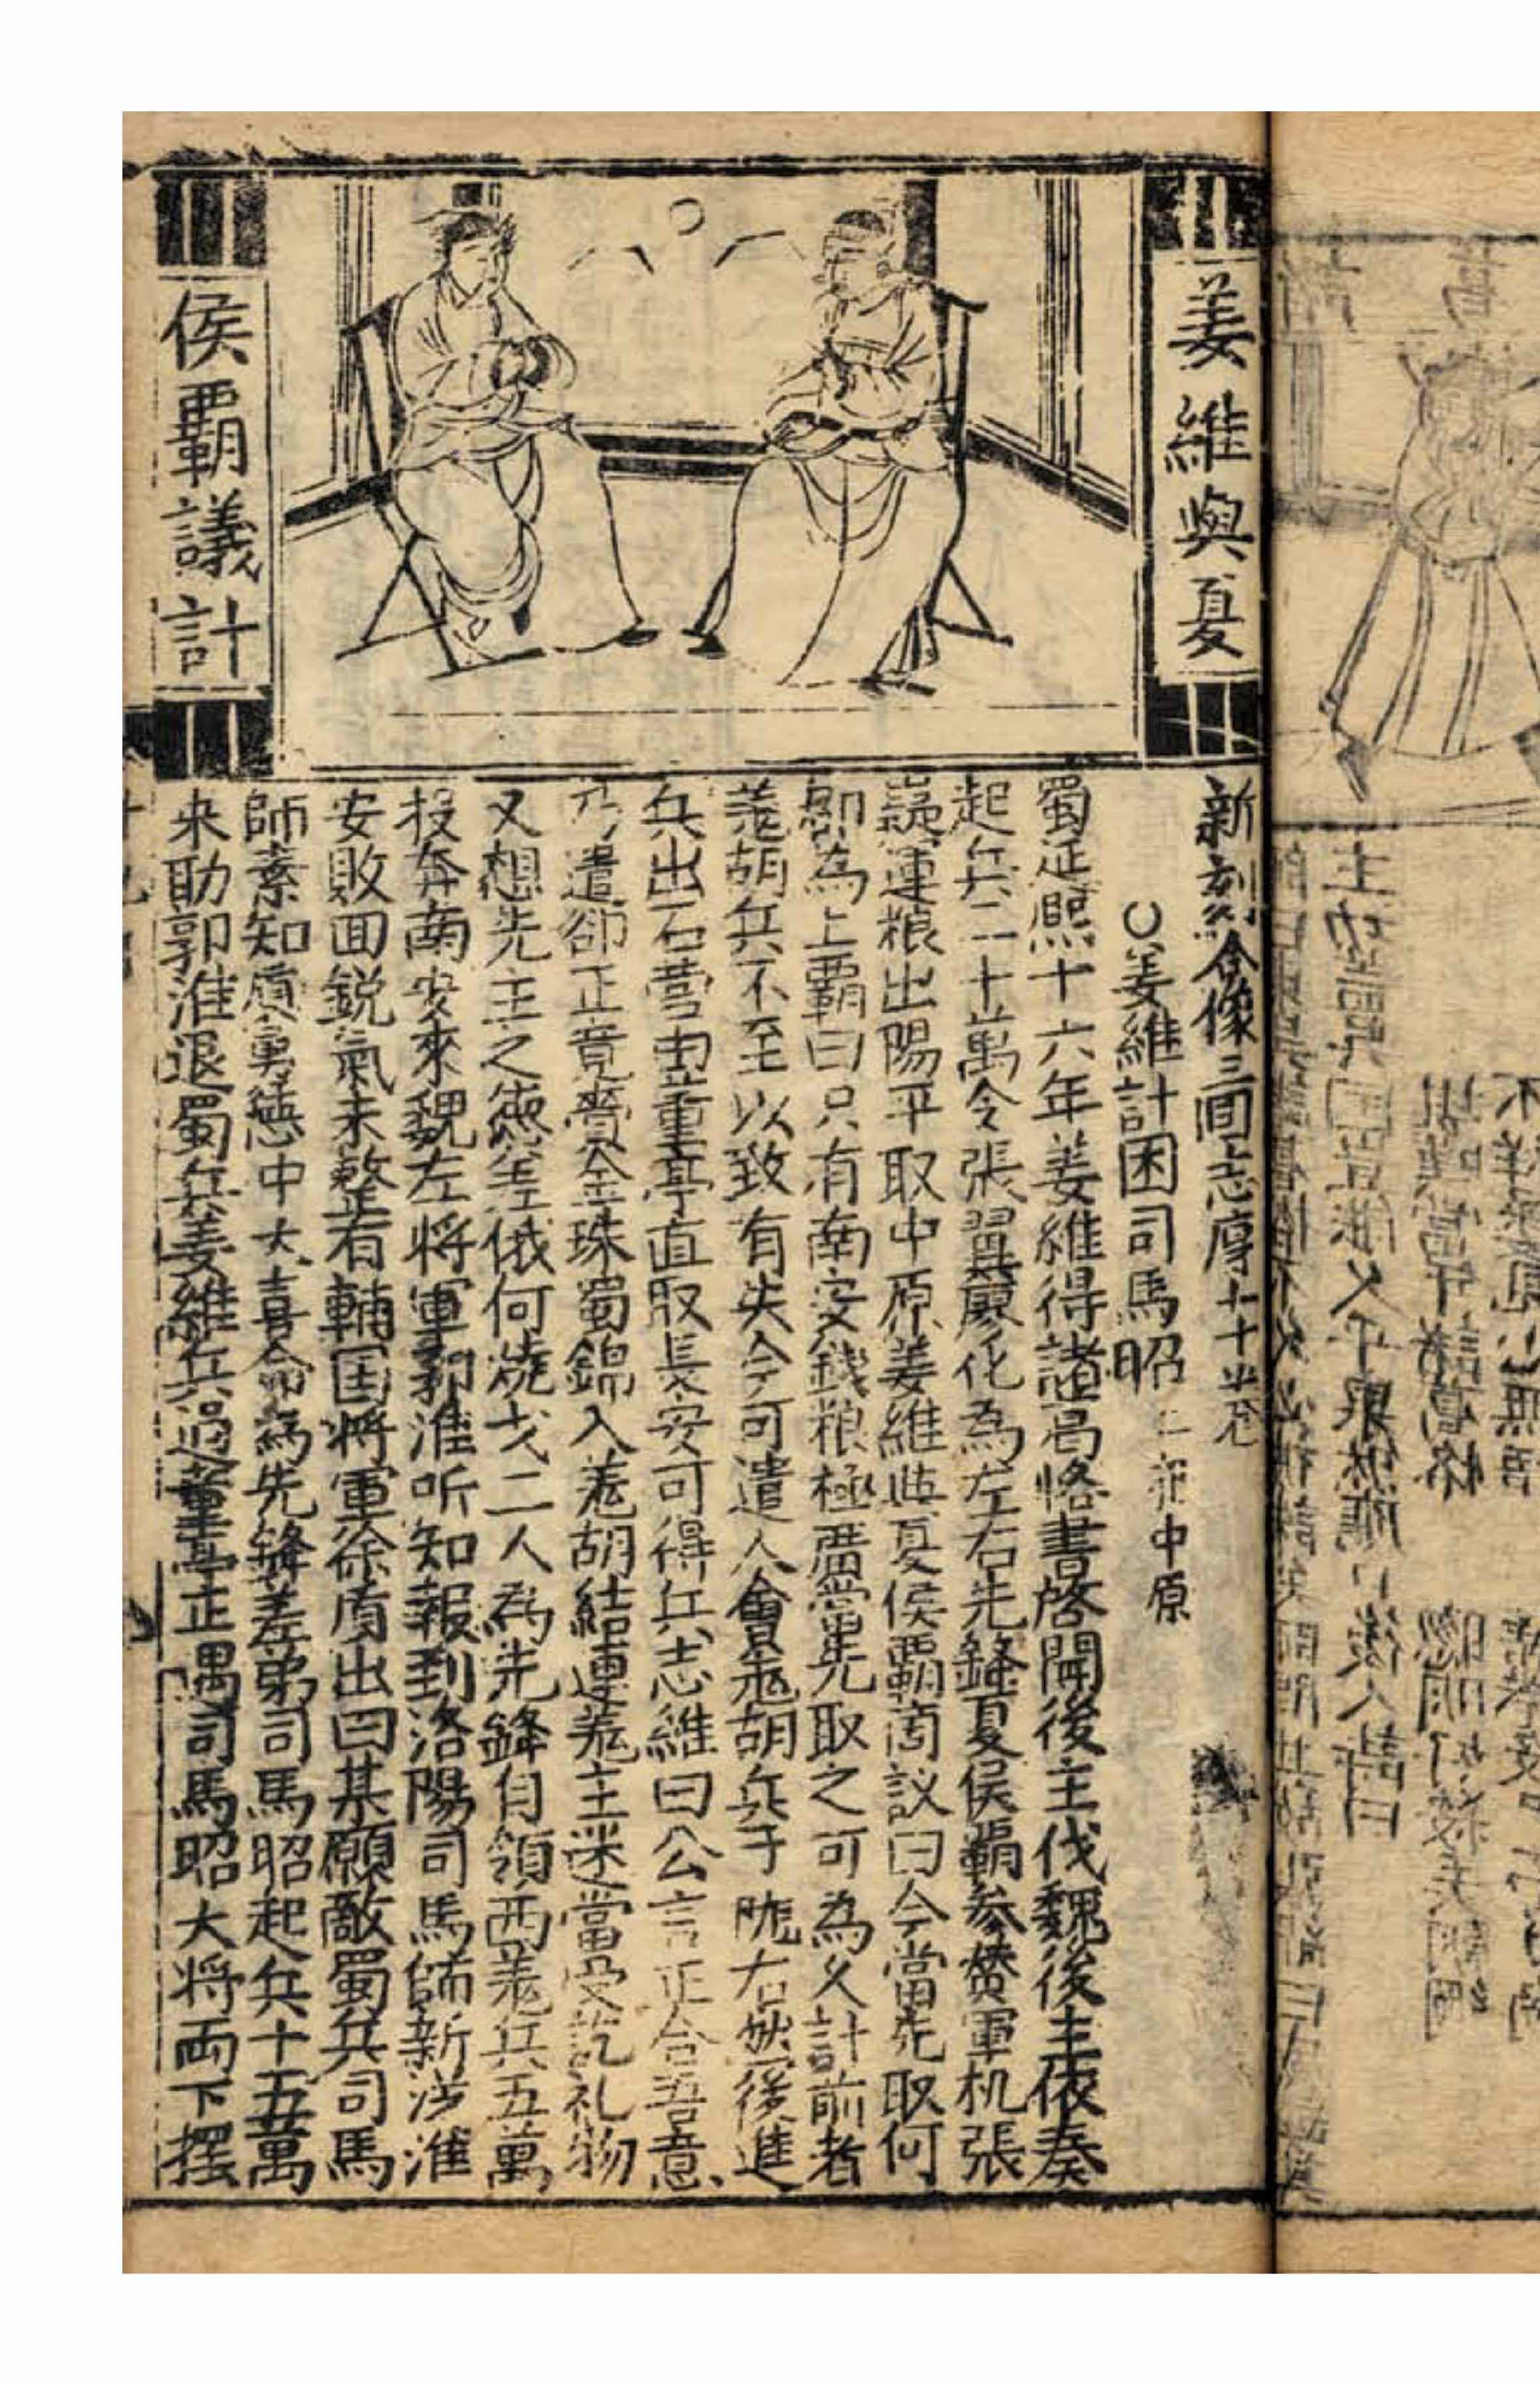 姜維與夏
侯覇議計
新刻全像三国志厚十十卷
○姜維計困司馬昭 二犯中原
蜀延熈十六年姜維得諸葛恪書啓開後主伐魏後主依奏
起兵二十萬令張翼廖化為左右先鋒夏侯覇參賛軍机張
嶷運粮出陽平取中原姜維與夏侯覇商议曰今當先取何
郡為上覇曰只有南安錢粮極廣當先取之可為久計前者
羗胡兵不至以致有失今可遣人會羗胡兵于隴右然後進
兵出石营由董亭直取長安可得兵志維曰公言正合吾意
乃遣卻正竟賫金珠蜀錦入羗胡結連羗主迷當受訖礼物
又想先主之德差俄何燒戈二人為先鋒自領西羗兵五萬
投奔南安來魏左将軍郭淮听知報到洛陽司馬師新涉淮
安敗回銳氣未整有輔国将軍徐質出曰某願敵蜀兵司馬
師素知質勇徳中大喜命為先鋒差弟司馬昭起兵十五萬
来助郭淮退蜀兵姜維兵過董亭正遇司馬昭大将両下摆